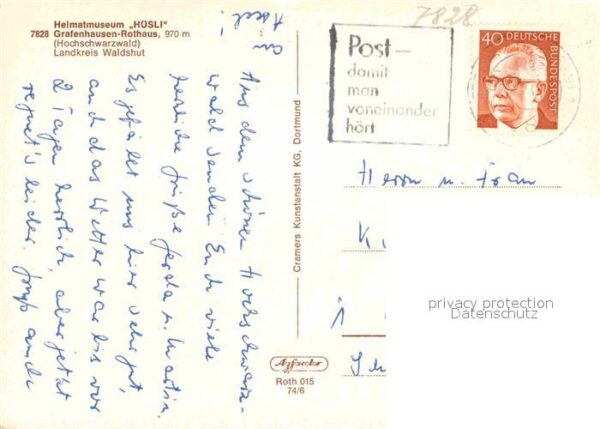 Heimatmuseum „HÜSLI"
7828 Grafenhausen-Rothaus, 970 m
(Hochschwarzwald)
Landkreis Waldshut
Aus dem schönen Hochschwarz-
wald senden Euch viele
herzliche Grüße Gerda u. Martin.
Es gefällt uns hier sehr gut,
auch das Wetter war bis vor
2 Tagen herrlich, aber jetzt
regnet's leider.
Cramers Kunstanstalt KG, Dortmund
Roth 015
74/6
7828
Post –
damit
man
voneinander
hört
40 DEUTSCHE
BUNDESPOST
Herrn u. Frau
K
privacy protection
Datenschutz